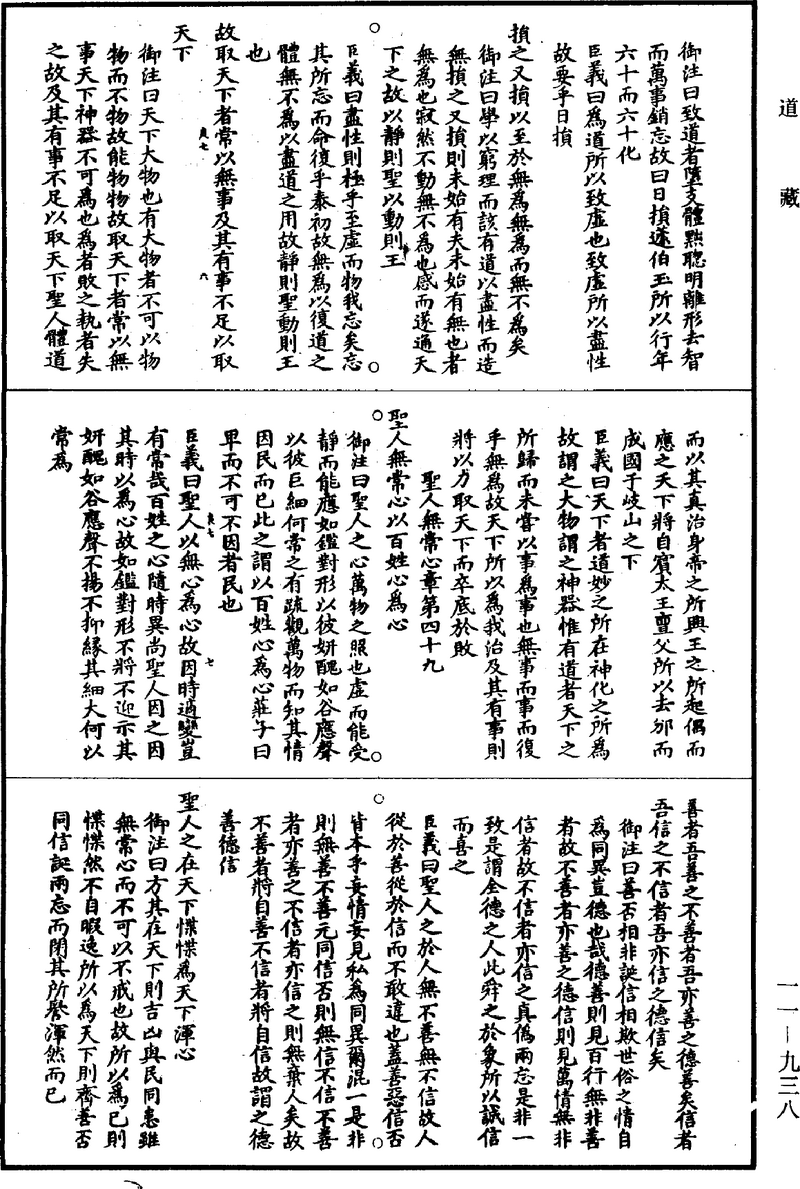 道藏
御注曰致道者墮支體黜聰明離形去智
而萬事銷忘故曰日損蘧伯玉所以行年
六十而六十化
臣義曰為道所以致虛也致虛所以盡性
故要乎日損
損之又損以至於無為無為而無不為矣
御注曰學以窮理而該有道以盡性而造
無損之又損則未始有夫未始有無也者
無為也寂然不動無不為也感而遂通天
下之故以靜則聖以動則王
臣義曰盡性則極乎至虛而物我忘矣忘
其所忘而命復乎泰初故無為以復道之
體無不為以盡道之用故靜則聖動則王
也
故取天下者常以無事及其有事不足以取
天下
御注曰天下大物也有大物者不可以物
物而不物故能物物故取天下者常以無
事天下神器不可為也為者敗之執者失
之故及其有事不足以取天下聖人體道
而以其真治身帝之所興王之所起偶而
應之天下將自賓太王亶父所以去邠而
成國于岐山之下
臣義曰天下者道妙之所在神化之所為
故謂之大物謂之神器惟有道者天下之
所歸而未嘗以事為事也無事而事而復
乎無為故天下所以為我治及其有事則
將以力取天下而卒底於敗
聖人無常心章第四十九
聖人無常心以百姓心為心
御注曰聖人之心萬物之照也虛而能受
靜而能應如鑑對形以彼妍醜如谷應聲
以彼巨細何常之有疏觀萬物而知其情
因民而已此之謂以百姓心為心莊子曰
卑而不可不因者民也
臣義曰聖人以無心為心故因時適變豈
有常哉百姓之心隨時異尚聖人因之因
其時以為心故如鑑對形不將不迎示其
妍醜如谷應聲不揚不抑緣其細大何以
常為
善者吾善之不善者吾亦善之德善矣信者
吾信之不信者吾亦信之德信矣
御注曰善否相非誕信相欺世俗之情自
為同異豈德也哉德善則見百行無非善
者故不善者亦善之德信則見萬情無非
信者故不信者亦信之真偽兩忘是非一
致是謂全德之人此舜之於象所以誠信
而喜之
臣義曰聖人之於人無不善無不信故人
從於善從於信而不敢違也蓋善惡信否
皆本乎妄情妄見私為同異爾混一是非
則無善不善元同信否則無信不信不善
者亦善之不信者亦信之則無棄人矣故
不善者將自善不信者將自信故謂之德
善德信
聖人之在天下惵惵為天下渾心
御注曰方其在天下則吉凶與民同患雖
無常心而不可以不戒也故所以為己則
惵惵然不自暇逸所以為天下則齊善否
同信誕兩忘而閉其所譽渾然而已
一一—九三八